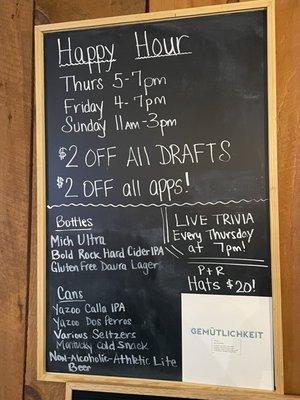 Happy Hour
Thurs 5-7pm
Friday 4-7pm
Sunday 11am-3pm
$2 OFF All DRAFTS
$2 OFF all apps!
Bottles
Mich Ultra
Bold Rock Hard Cider IPA
Gluten Free Daura Lager
LIVE TRIVIA
Every Thursday
at 7pm!
P+R
Hats $20!
Cans
Yazoo Calla IPA
Yazoo Dos Perros
Various Seltzers
Cold Snack
Non-Alcoholic-Athletic Lite
Beer
GEMÜTLICHKEIT